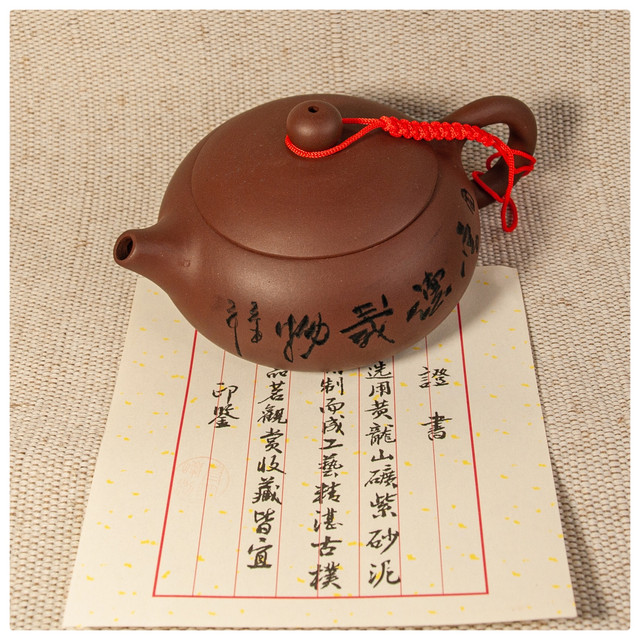 厚德載物
證書
选用黃龍山礦紫砂泥
制而成工藝精湛古樸
品茗觀賞收藏皆宜
印鑒